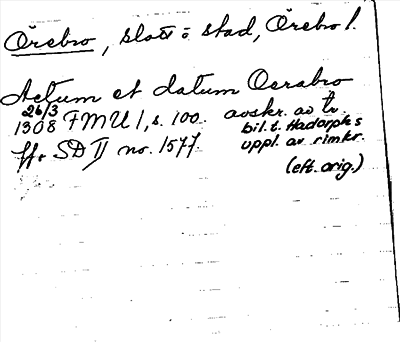 Örebro, slott o stad, Örebro l.
Actum et datum Oerabro
26/3
1308 FMU 1, s. 100. avskr. av tr.
bil. t. Hadorphs
jfr SD II no. 1577. uppl. av rimkr.
(eft. orig.)